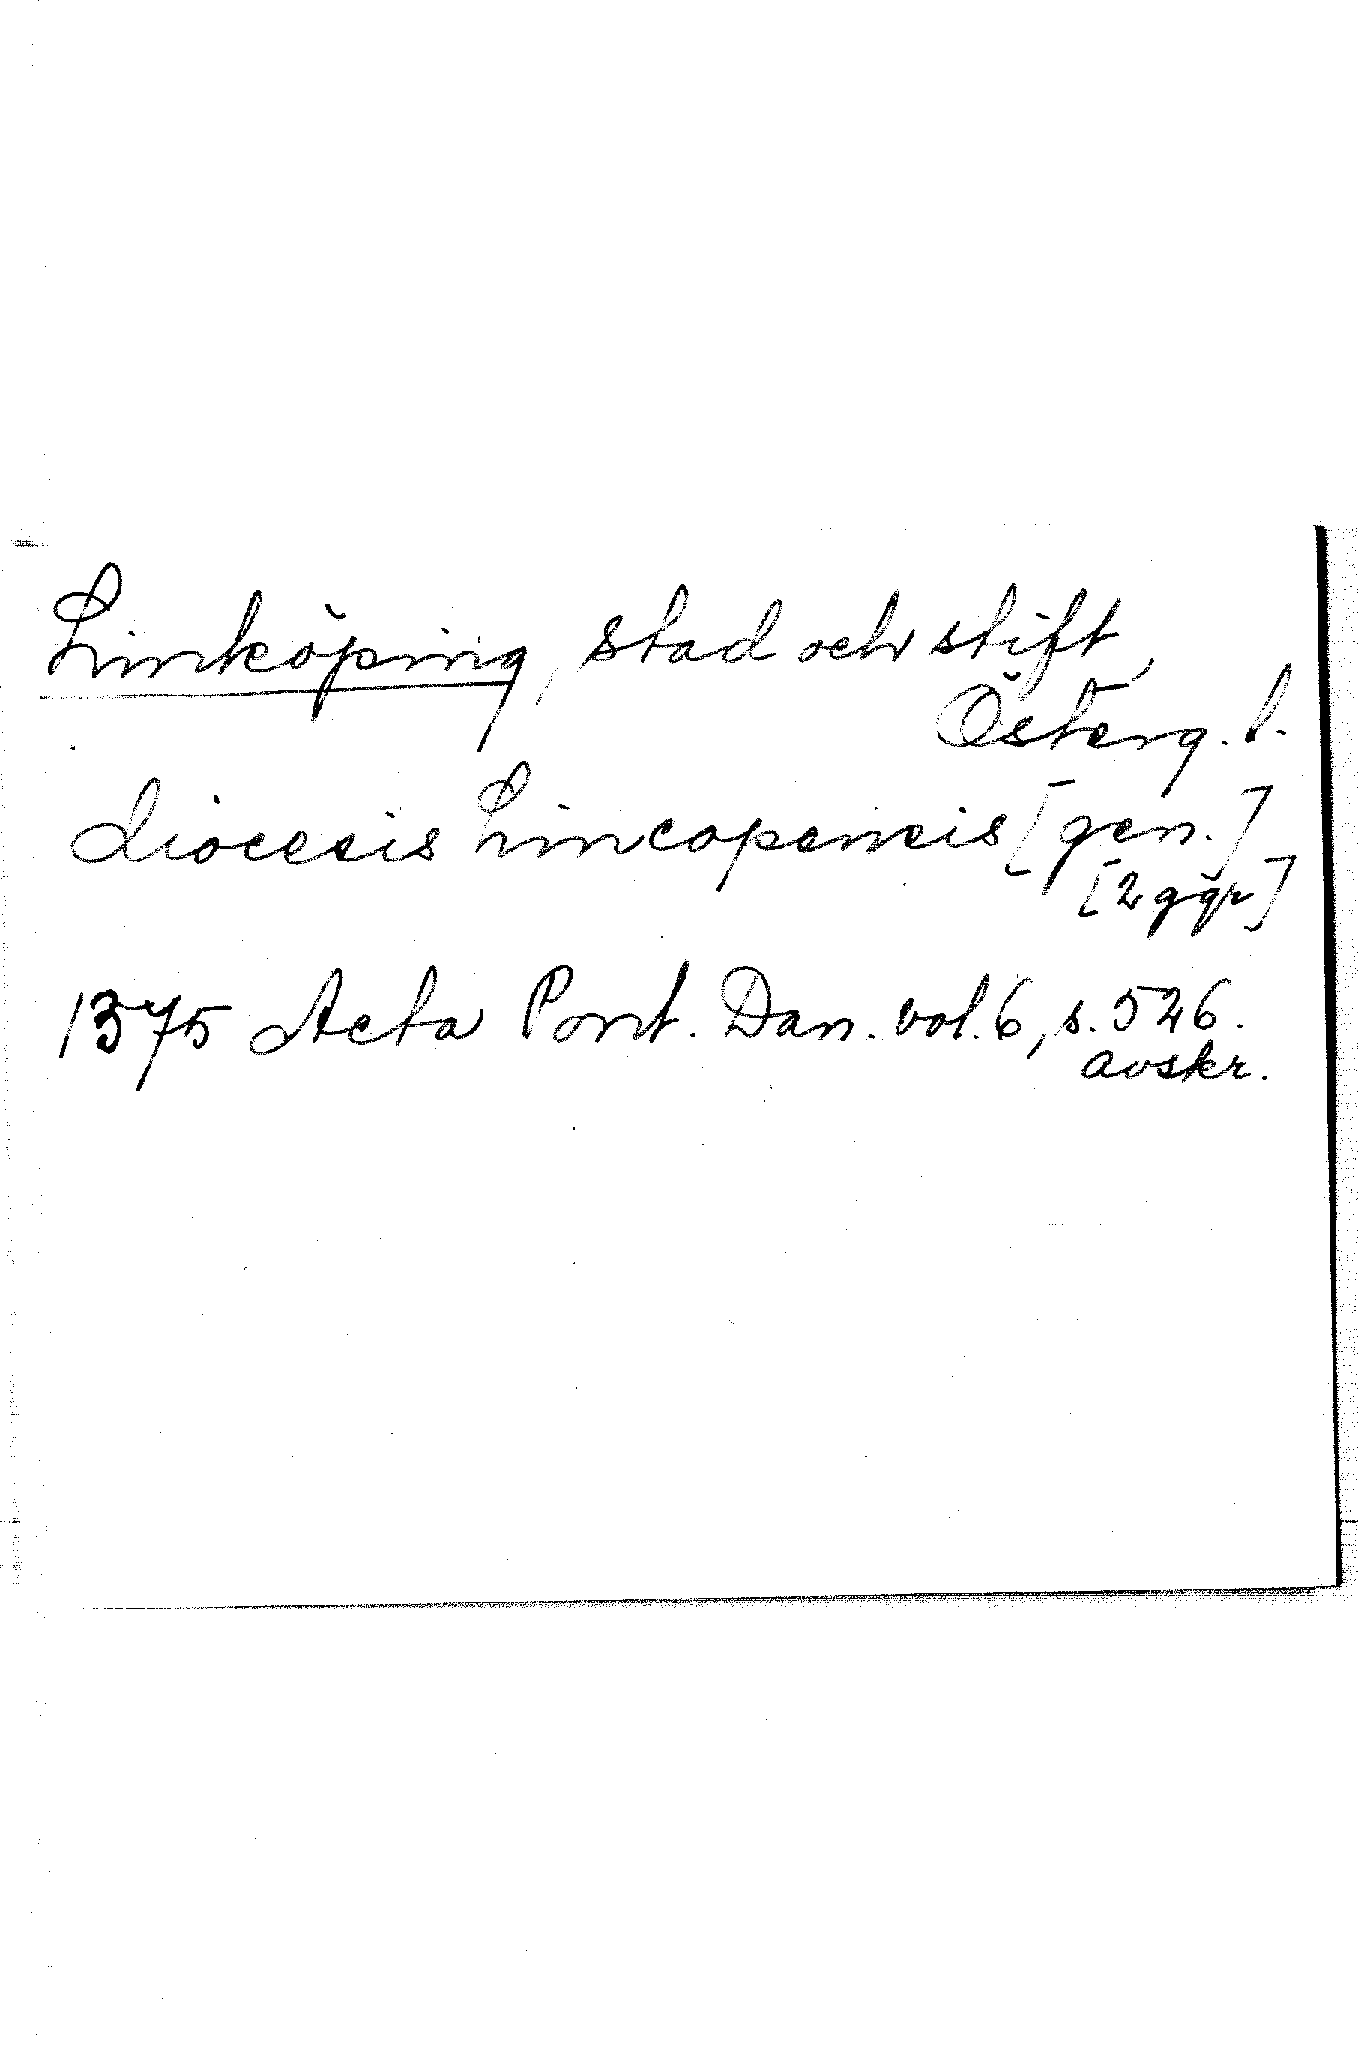 Linköping, stad och stift,
Österg. l.
diocesis Lincopensis [gen.]
[2 ggr]
1375 Acta Pont. Dan. vol. 6, s. 526.
avskr.